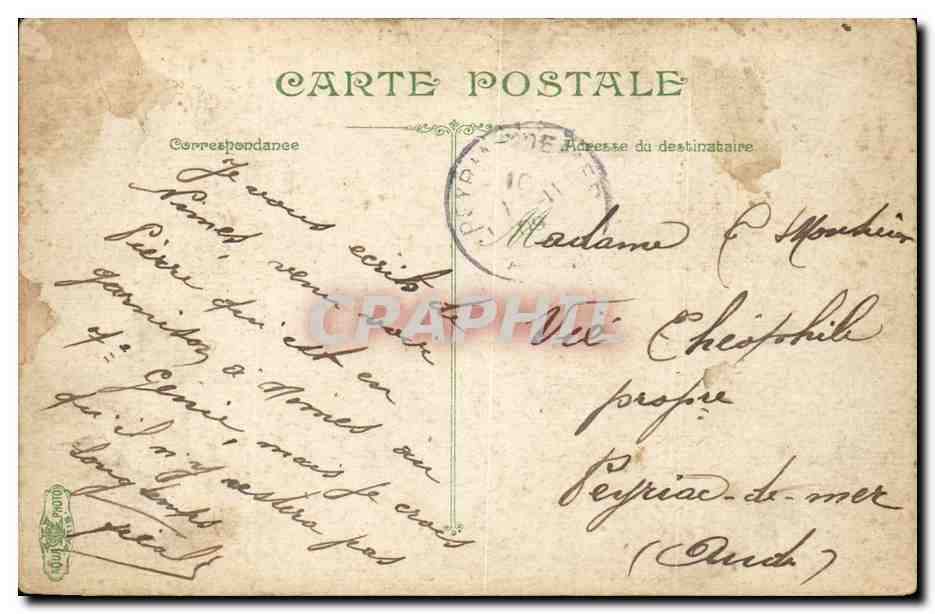 CARTE POSTALE
Correspondance
Adresse du destinataire
Je vous ecris de
Nimes venu voir
Pierre qui est en
garnison à Nimes au
7e Génie mais je crois
qu'il n'y restera pas
long temps
Madame & Monsieur
Vié Théophile
propre
Peyriac-de-mer
(Aude)
CRAPHIL
AQUA PHOTO